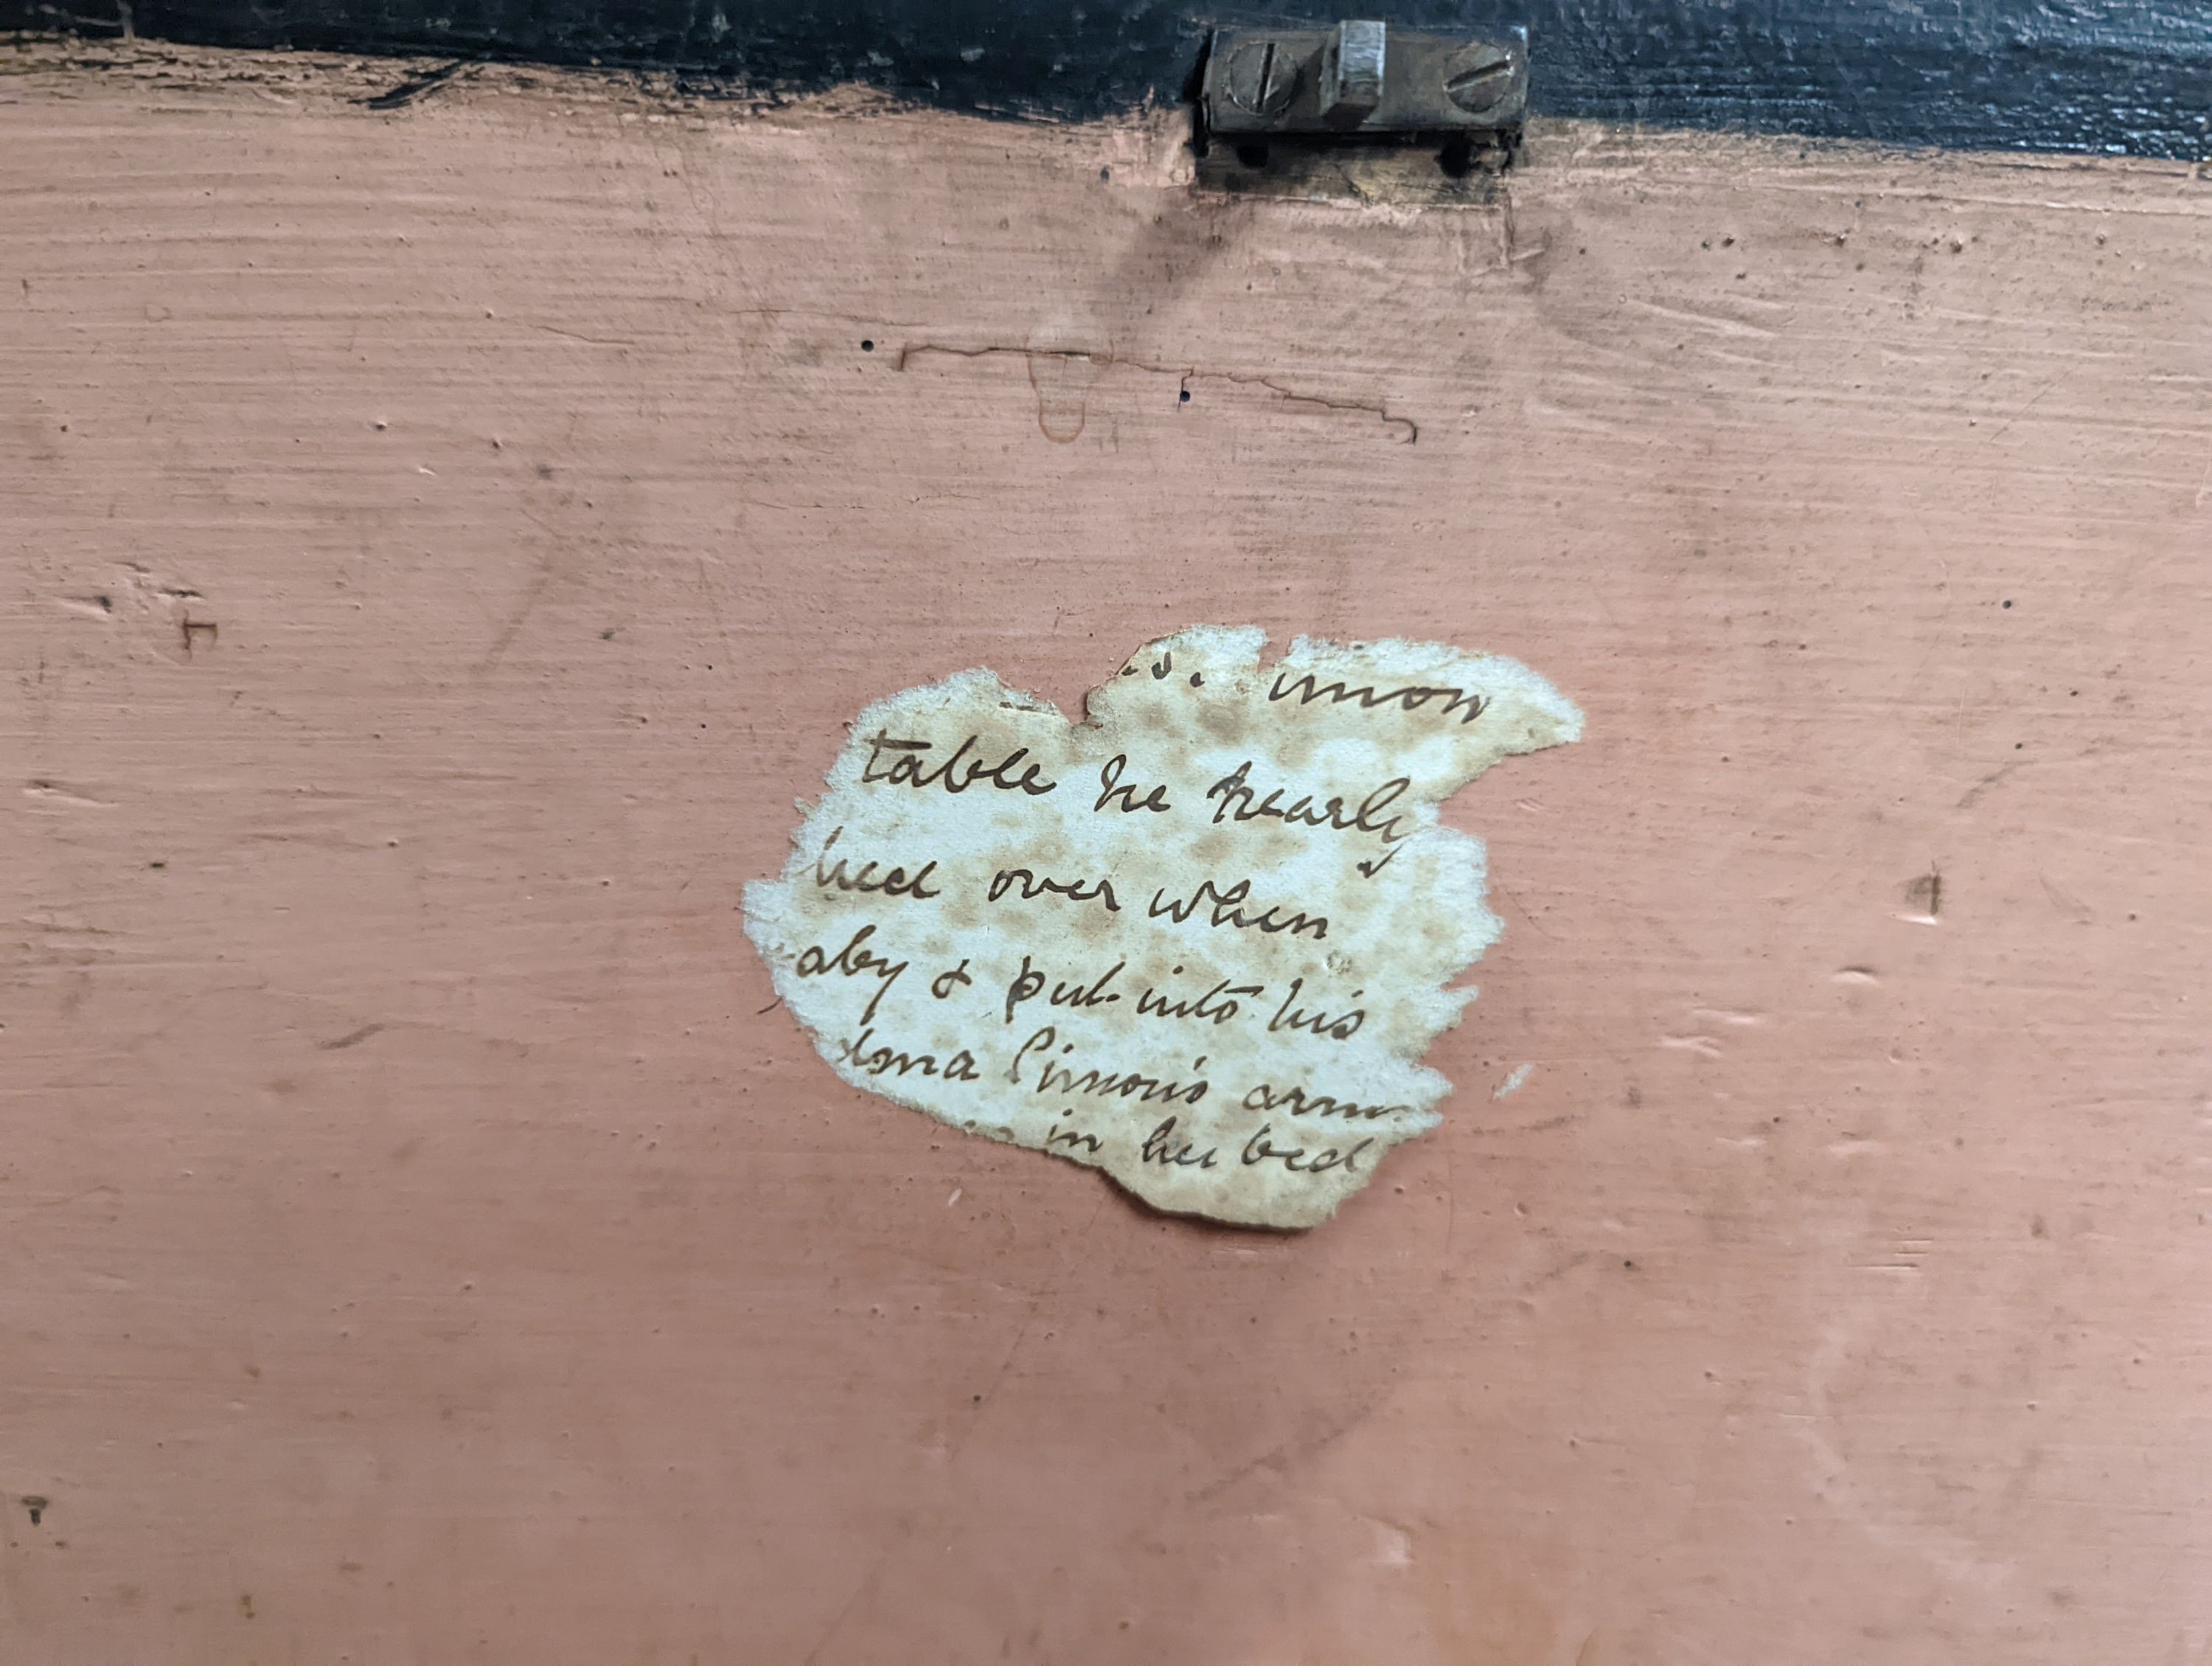 imon
table he nearly
hed over when
aby & put into his
dma Simon's arm
in her bed